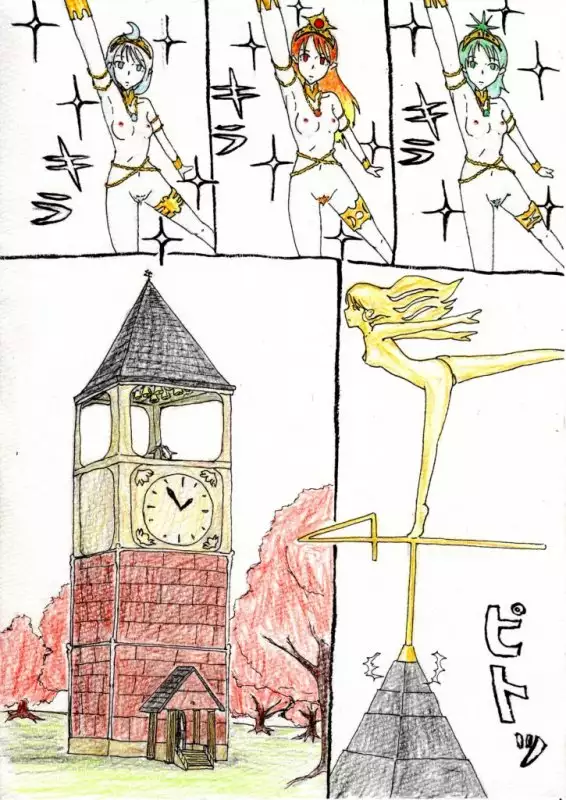 キラ
キラ
キラ
ピトッ